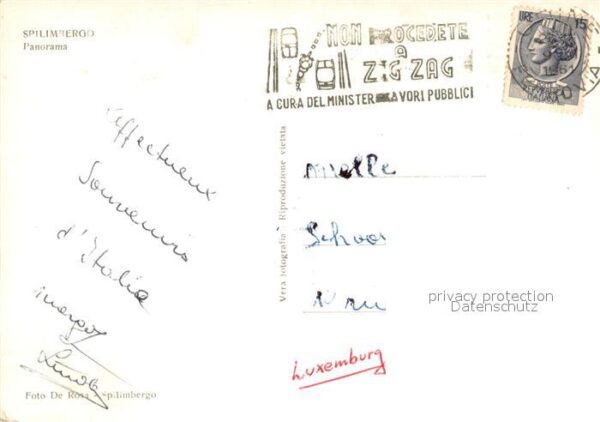 SPILIMBERGO
Panorama
NON PROCEDETE
A
ZIG ZAG
A CURA DEL MINISTER LAVORI PUBBLICI
LIRE 15
affectueux
Souvenirs
d'Italie
Foto De Rosa - Spilimbergo
Vera fotografia - Riproduzione vietata
Melle
Luxemburg
privacy protection
Datenschutz